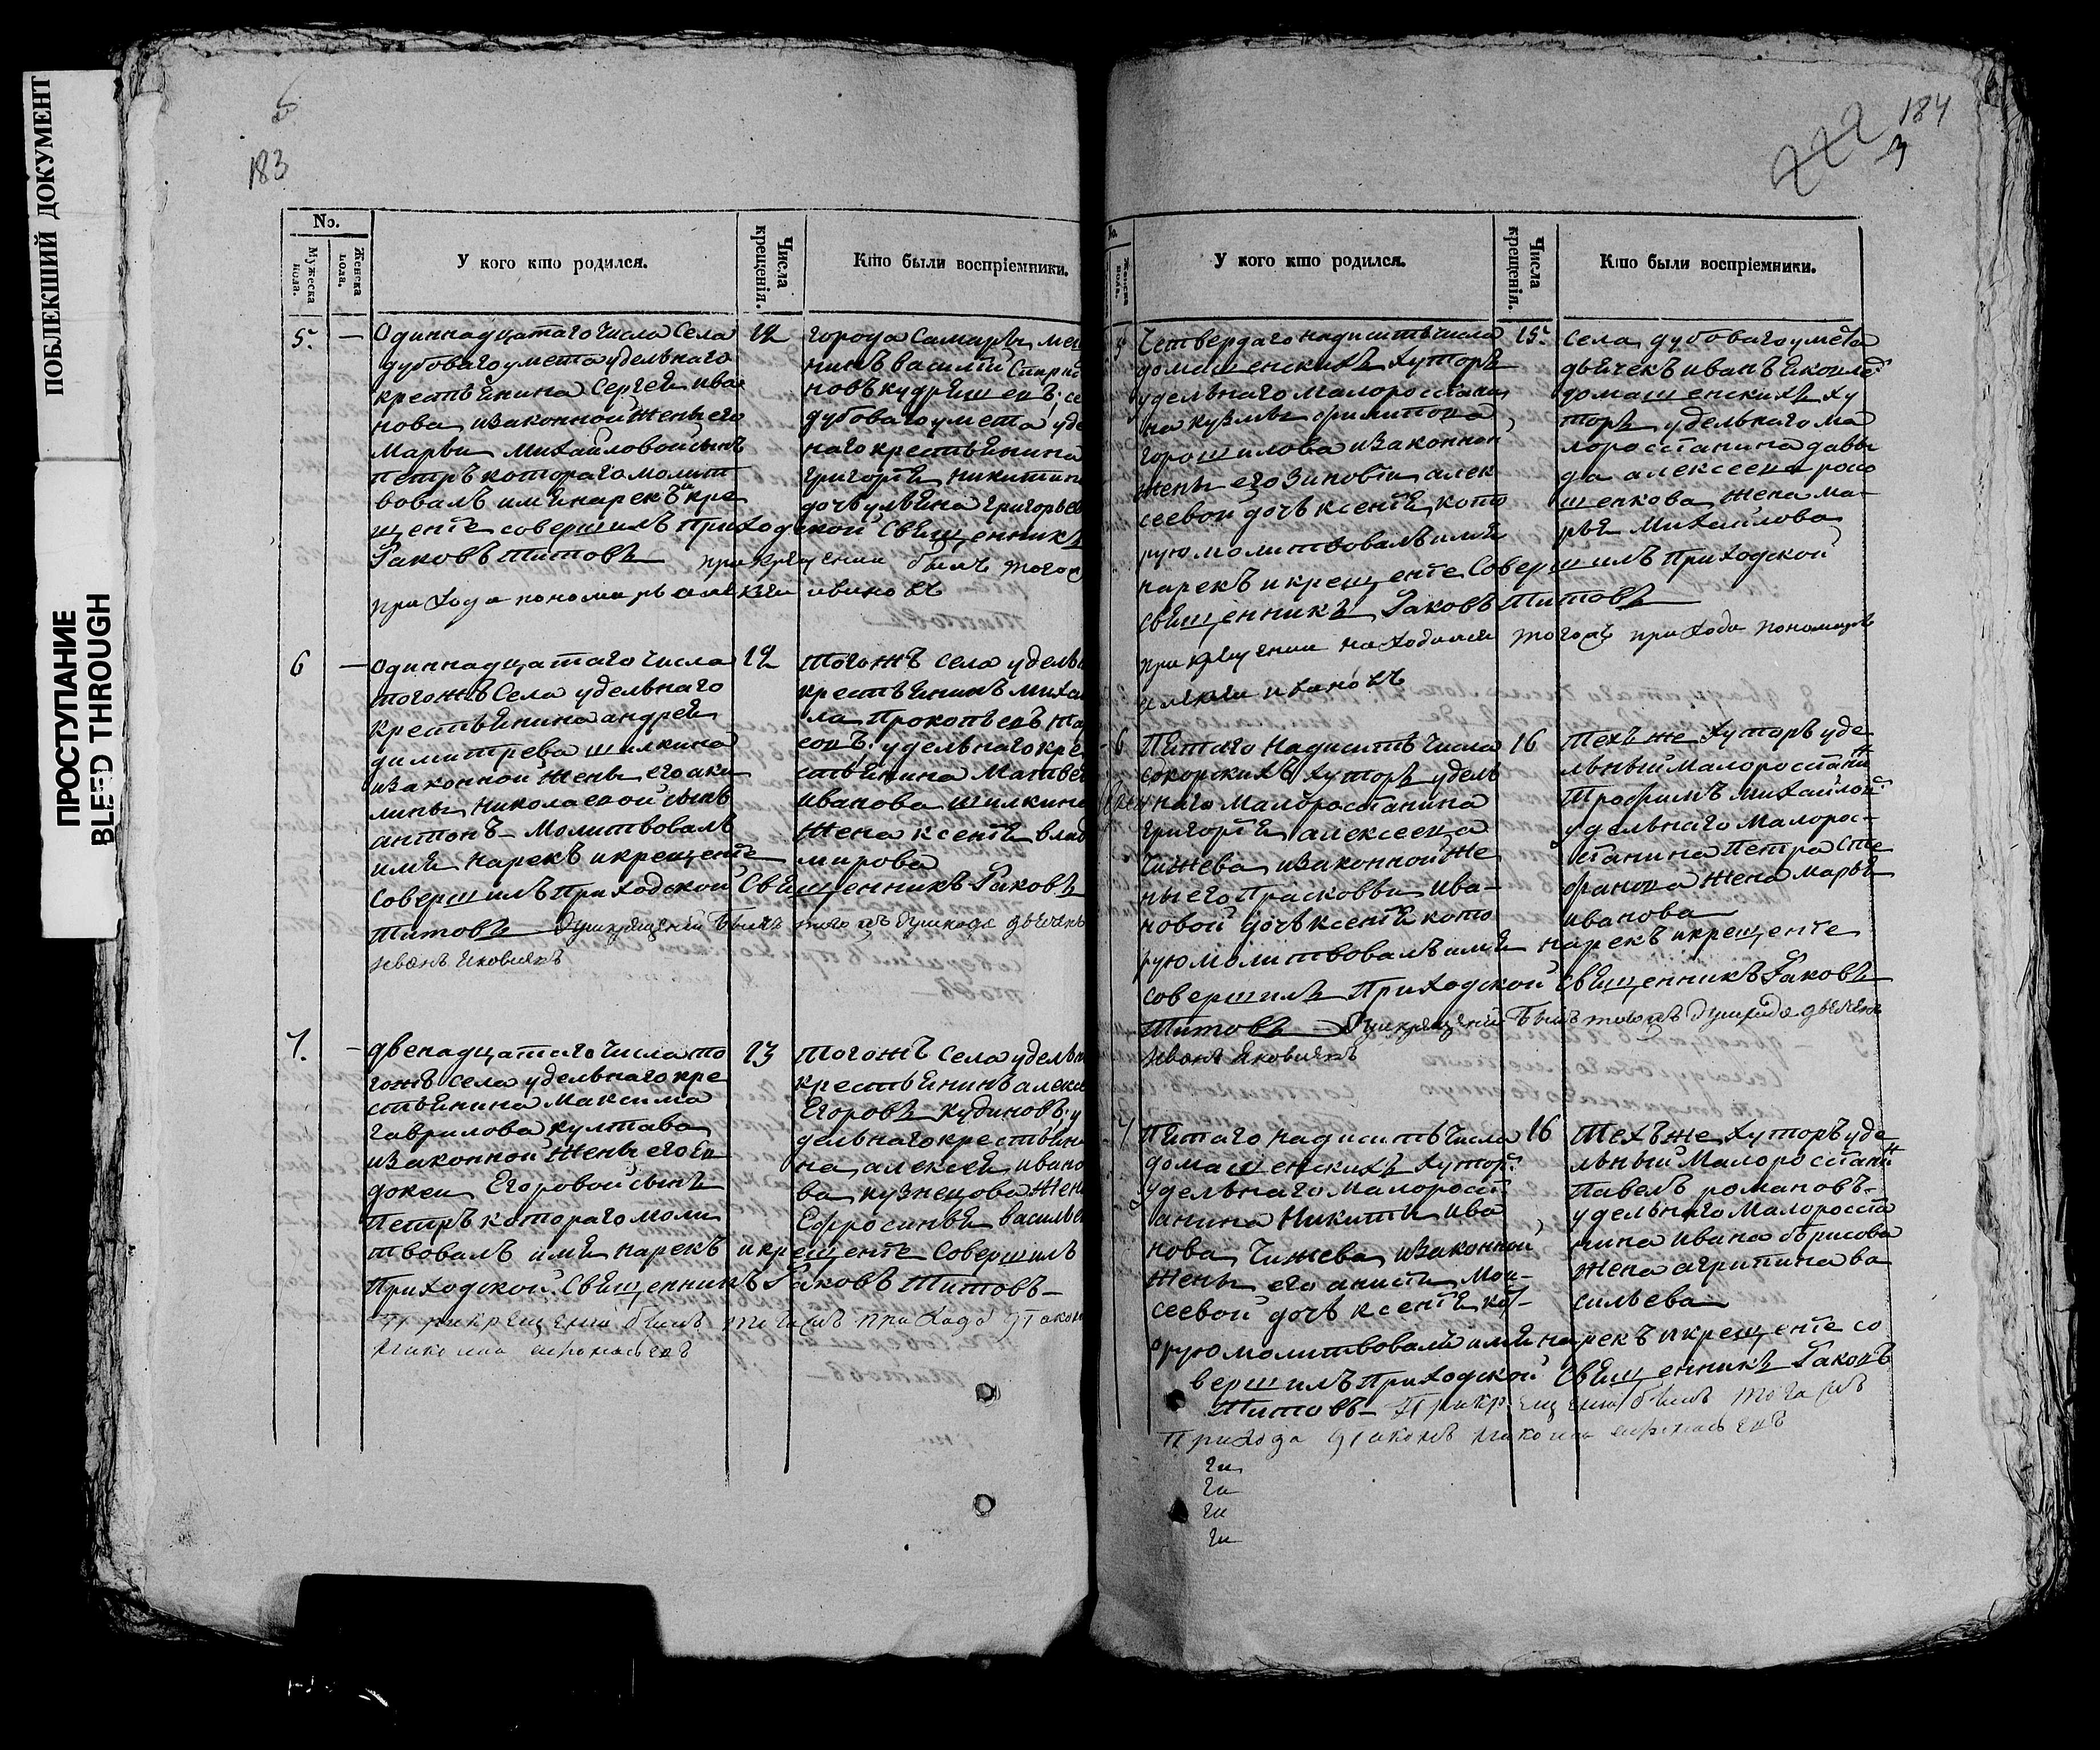 ПОБЛЕКШИЙ ДОКУМЕНТ
ПРОСТУПАНИЕ
BLED THROUGH
183
No.
Мужеска пола.
Женска пола.
У кого кто родился.
Числа крещенія.
Кто были воспріемники.
5.
Одиннадцатаго числа села
дубоваго умета удельнаго
крестьянина Сергея ива
нова изаконной жены его
Марьи Михайловой сынъ
петръ котораго молит
вовалъ имя нарекъ и кре
щение совершилъ приходской Священникъ
Іаковъ Титовъ при крещении былъ тогож
прихода пономарь алексеи ивановъ
12
города Самары мещ
нинъ василий Спирид
новъ кудряшевъ: се
дубоваго умета уде
наго крестьянина
григорїя никитин
дочь ульяна григорьев
6
одиннадцатаго числа
тогожъ Села удельнаго
крестьянина андрея
димитрева шилкина
изаконной жены его аку
лины Николаевой сынъ
антонъ - Молитвовалъ
имя нарекъ и крещенїе
совершилъ приходской Священникъ Іаковъ
Титовъ При крещении былъ тогожъ прихода дьячекъ
Иванъ Яковлевъ
12
тогожъ села удельн
крестьянинъ миха
ла Прокопьевъ та
совъ: удельнаго кре
стьянина Матвея
иванова шилкина
жена ксенїя влад
мирова
7.
двенадцатаго числа то
гожъ села удельнаго кре
стьянина Максима
гаврилова култава
изаконной жены его Ев
докеи Егоровой сынъ
Петръ котораго моли
твовалъ имя нарекъ и крещенїе совершилъ
Приходской Священникъ Іаковъ Титовъ -
При крещении былъ тогожъ прихода дїакон
Николай афонасьевъ
13
тогожъ села удельн
крестьянинъ алекс
Егоровъ кудиновъ: у
дельнаго крестьян
на алексея ивано
ва кузнецова жена
Ефросинья васильев
184
3
No.
Женска пола.
У кого кто родился.
Числа крещенія.
Кто были воспріемники.
5
Четвертаго надесять числа
домашенскихъ хуторъ
удельнаго малороссїани
на кузмы филипова
горошилова изаконной
жены его Зиновїи алек
сеевой дочь ксенїя кото
рую молитвовалъ имя
нарекъ и крещенїе Совершилъ Приходской
священникъ Іаковъ Титовъ
при крещении находился тогожъ прихода пономарь
алексеи ивановъ
15.
села дубоваго умета
дьячекъ иванъ Яковлев
домашенскихъ ху
торъ удельнаго ма
лороссїанина давы
да алексеева
жена ма-
рья Михайлова
6
Пятаго надесять числа
сокорскихъ хуторъ удель
наго малороссїанина
григорїя алексеева
Чижева изаконной же
ны его Прасковьи ива-
новой дочь ксенїя кото
рую молитвовалъ имя нарекъ и крещенїе
совершилъ Приходской Священникъ Іаковъ
Титовъ При крещении былъ тогожъ прихода дьячекъ
Иванъ Яковлевъ
16
Техъ же Хуторъ уде
льный Малороссїанин
Трофимъ Михайлов:
удельнаго Малорос-
сїанина Петра Сте
фанова жена марья
иванова
7
Пятаго надесять числа
домашенскихъ хутор:
удельнаго Малоросс
їанина Никиты ива
нова Чижева изаконной
жены его анисїи Мои-
сеевой дочь ксенїя кот-
орую молитвовалъ имя нарекъ и крещенїе со
вершилъ Приходской Священникъ Іаковъ
Титовъ - При крещении былъ тогожъ
Прихода дїаконъ Николай афонасьевъ
16
Техъ же Хуторъ уде
льный Малороссїанин
Павелъ романовъ-
удельнаго Малороссїа
нина ивана борисова
жена агрипина ва
сильева